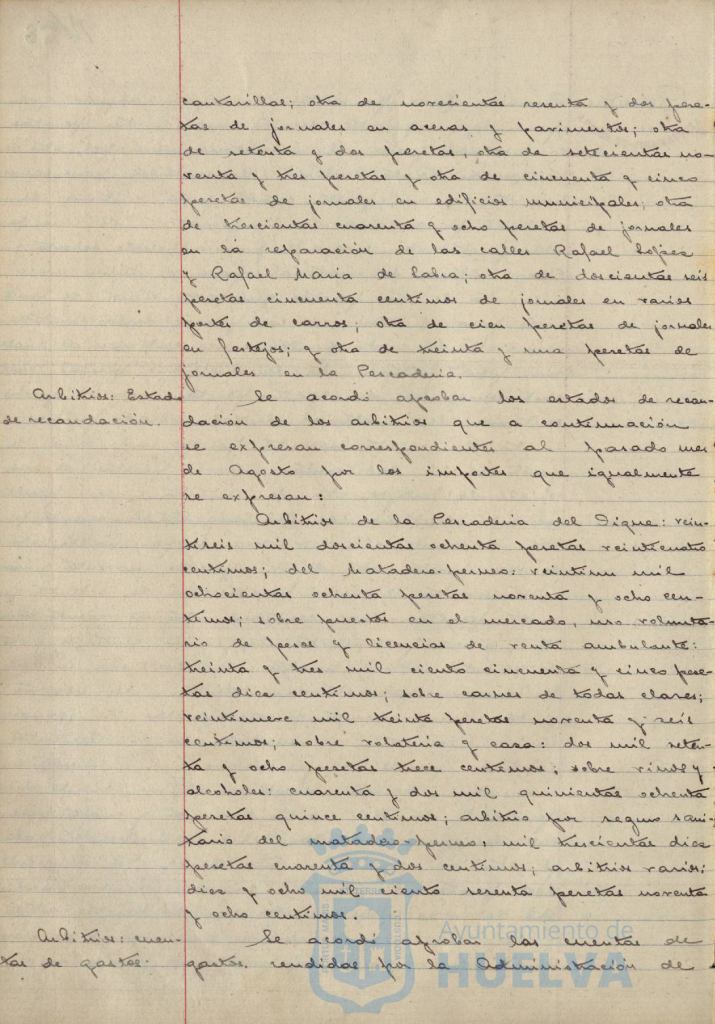 cantarillas; otra de novecientas sesenta y dos pese-
tas de jornales en aceras y pavimentos; otra
de setenta y dos pesetas, otra de setecientas no-
venta y tres pesetas y otra de cincuenta y cinco
pesetas de jornales en edificios municipales; otra
de trescientas cuarenta y ocho pesetas de jornales
en la reparación de las calles Rafael López
y Rafael María de Labra; otra de doscientas seis
pesetas cincuenta centimos de jornales en varios
portes de carros; otra de cien pesetas de jornales
en festejos; y otra de treinta y una pesetas de
jornales en la Pescaderia.
Arbitrios: Estados
de recaudación.
Se acordó aprobar los estados de recau-
dación de los arbitrios que a continuación
se expresan correspondientes al pasado mes
de Agosto por los importes que igualmente
se expresan:
Arbitrios de la Pescaderia del Dique: vein-
tiseis mil doscientas ochenta pesetas veinticuatro
centimos; del Matadero-perneo: veintiun mil
ochocientas ochenta pesetas noventa y ocho cen-
timos; sobre puestos en el mercado, uso volunta-
rio de pesos y licencias de venta ambulante:
treinta y tres mil ciento cincuenta y cinco pese-
tas diez centimos; sobre carnes de todas clases;
veintinueve mil treinta pesetas noventa y seis
centimos; sobre volateria y caza: dos mil seten-
ta y ocho pesetas trece centimos; sobre vinos y
alcoholes: cuarenta y dos mil quinientas ochenta
pesetas quince centimos; arbitrio por seguro sani-
tario del matadero-perneo: mil trescientas diez
pesetas cuarenta y dos centimos; arbitrios varios:
diez y ocho mil ciento sesenta pesetas noventa
y ocho centimos.
Arbitrios: cuen-
tas de gastos.
Se acordó aprobar las cuentas de
gastos rendidas por la Administración de
Ayuntamiento de
HUELVA